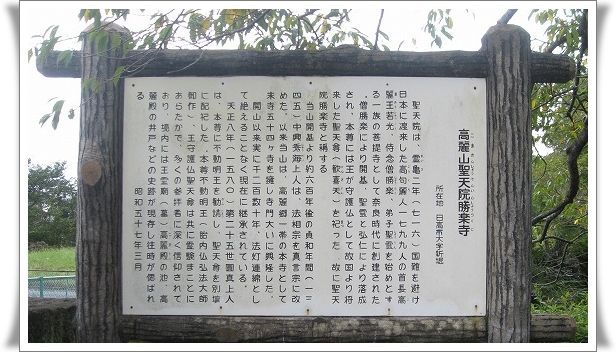 高麗山聖天院勝楽寺
所在地 日高市大字新堀
聖天院は、霊亀二年(七一六)国難を避け
日本に渡来した高句麗人一七九九人の首長高
麗王若光、侍念僧勝楽、弟子聖雲を始めとす
る一族の菩提寺として奈良時代に創建された
僧勝楽により開基、聖雲と弘仁により落成
され、本尊には王が守護仏として故国より将
来した聖天尊(歓喜天)を祀った 故に聖天
院勝楽寺と称する。
当山開基より約六百年後の貞和年間(一三
四五)中興秀海上人は、法相宗を真言宗に改
めた。以来当山は、高麗郷一帯の本寺として
末寺五十四ヶ寺を擁し寺門大いに興隆した。
開山以来実に千二百数十年、法灯連綿とし
て絶えることなく現在に継承されている。
天正八年(一五八〇)第二十五世圓真上人
は、本尊に不動明王を勧請し、聖天尊を別壇
に配祀した。本尊不動明王(胎内仏弘法大師
御作)、王守護仏聖天尊は共に霊験まことに
あらたかで、多くの参拝者に深く信仰されて
おり、境内には王霊廟(墓)高麗殿の池、高
麗殿の井戸などの史跡が現存し往時が偲ばれ
る
昭和五十七年三月